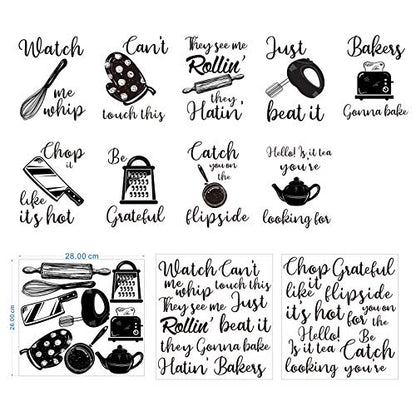 Watch
me
whip
Can't
touch this
They see me
Rollin'
they
Hatin'
Just
beat it
Bakers
Gonna bake
Chop
it
like
it's hot
Be
Grateful
Catch
you on
the
flipside
Hello! Is it tea
you're
looking for
28.00 cm
26.00 cm
Watch Can't
me whip touch this
They see me Just
Rollin' beat it
they Gonna bake
Hatin' Bakers
Chop Grateful
it like flipside
it's hot you on for the
Hello! Be
Is it tea Catch
looking you're